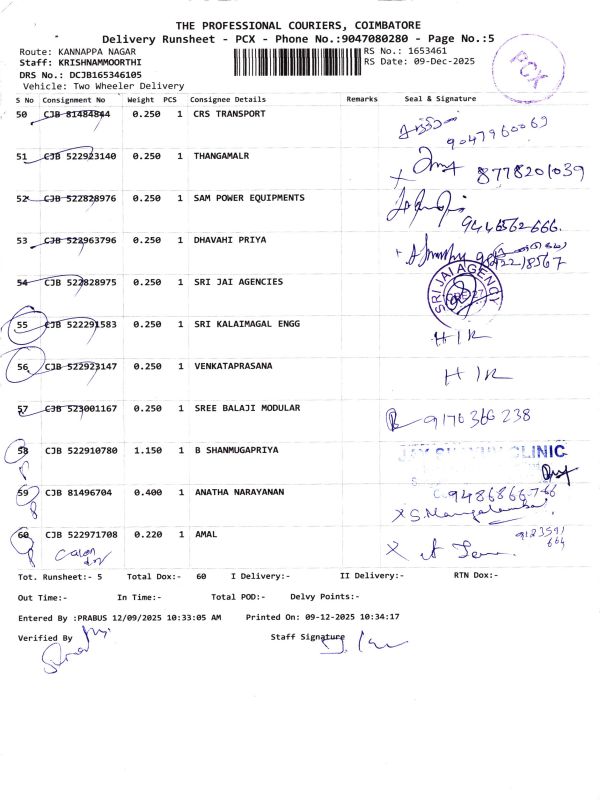 THE PROFESSIONAL COURIERS, COIMBATORE
Delivery Runsheet - PCX - Phone No.:9047080280 - Page No.:5
Route: KANNAPPA NAGAR
RS No.: 1653461
Staff: KRISHNAMMOORTHI
RS Date: 09-Dec-2025
DRS No.: DCJB165346105
Vehicle: Two Wheeler Delivery
PCX
S No Consignment No Weight PCS Consignee Details Remarks Seal & Signature
50 CJB 81484844 0.250 1 CRS TRANSPORT
9047960069
51 CJB 522923140 0.250 1 THANGAMALR
8778201039
52 CJB 522828976 0.250 1 SAM POWER EQUIPMENTS
9446562-666.
53 CJB 522963796 0.250 1 DHAVAHI PRIYA
54 CJB 522828975 0.250 1 SRI JAI AGENCIES
SRI JAI AGENCY
55 CJB 522291583 0.250 1 SRI KALAIMAGAL ENGG
H I K
56 CJB 522923147 0.250 1 VENKATAPRASANA
H I K
57 CJB 523001167 0.250 1 SREE BALAJI MODULAR
9176366238
58 CJB 522910780 1.150 1 B SHANMUGAPRIYA
CLINIC
59 CJB 81496704 0.400 1 ANATHA NARAYANAN
X S. Mangalambal
60 CJB 522971708 0.220 1 AMAL
9123591
664
Tot. Runsheet:- 5 Total Dox:- 60 I Delivery:- II Delivery:- RTN Dox:-
Out Time:- In Time:- Total POD:- Delvy Points:-
Entered By :PRABUS 12/09/2025 10:33:05 AM Printed On: 09-12-2025 10:34:17
Verified By Staff Signature